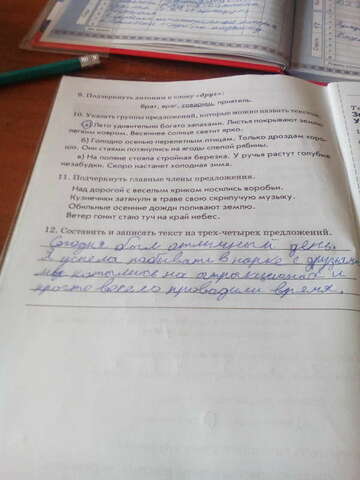 9. Подчеркнуть антоним к слову «друг»:
Брат, враг, товарищ, приятель.
10. Указать группы предложений, которые можно назвать текстом.
а) Лето удивительно богато запахами. Листья покрывают землю
легким ковром. Весеннее солнце светит ярко.
б) Голодно осенью перелетным птицам. Только дроздам хоро-
шо. Они стаями потянулись на ягоды спелой рябины.
в) На поляне стояла стройная березка. У ручья растут голубые
незабудки. Скоро настанет холодная зима.
11. Подчеркнуть главные члены предложения.
Над дорогой с веселым криком носились воробьи.
Кузнечики затянули в траве свою скрипучую музыку.
Обильные осенние дожди поливают землю.
Ветер гонит стаю туч на край небес.
12. Составить и записать текст из трех-четырех предложений.
Сегодня был отличный день.
Я успела побывать в парке с друзьями
мы катались на атракционах и
просто весело проводили время.